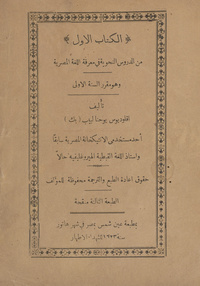 ﴿ الكتاب الاول ﴾
من الدروس النحوية في معرفة اللغة المصرية
وهو مقرر السنة الاولى
تأليف
اقلوديوس يوحنا لبيب ( بك )
احد مستخدمي الانتيكخانة المصرية سابقا
واستاذ اللغة القبطية الهيروغليفية حالا
حقوق اعادة الطبع والترجمة محفوظة للمؤلف
الطبعة الثالثة منقحة
بمطبعة عين شمس بمصر في شهر هاتور
سنة للشهداء الاطهار